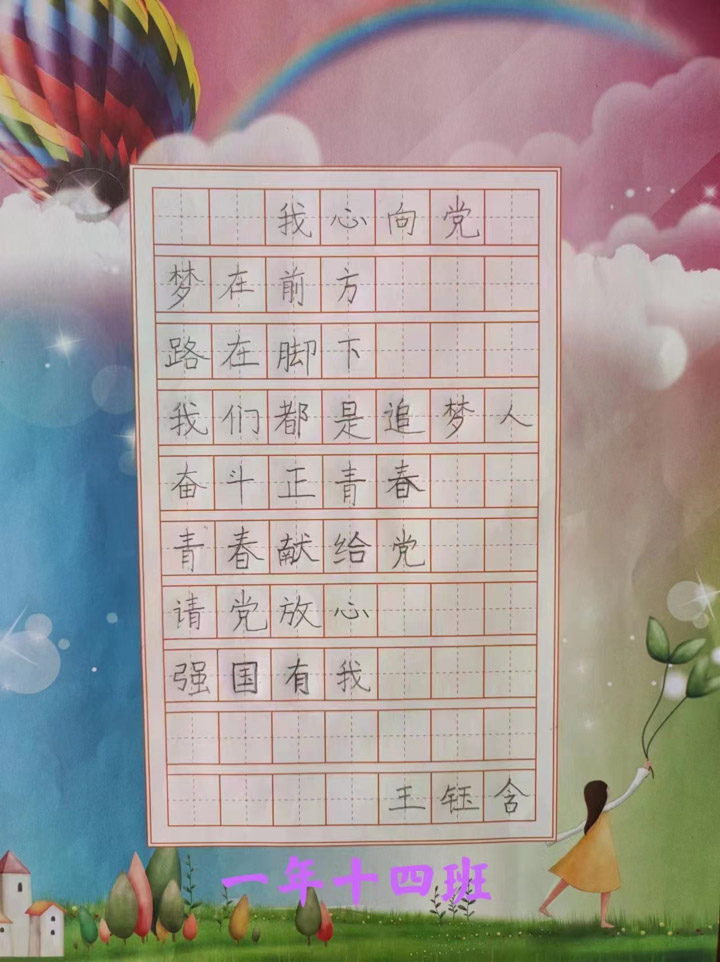 我心向党
梦在前方
路在脚下
我们都是追梦人
奋斗正青春
青春献给党
请党放心
强国有我
王钰含
一年十四班